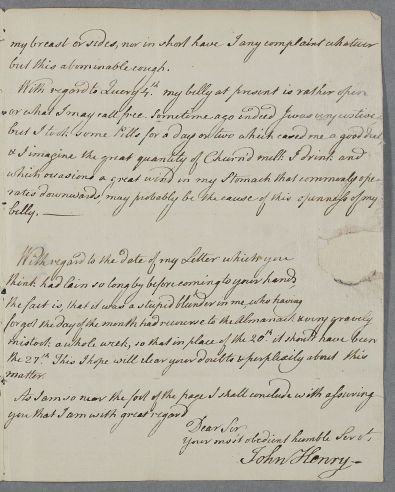 my breast or sides, nor in short have I any complaint whatever
but this abominable cough.
With regard to Query 4th. my belly at present is rather open
or what I may call free. Sometime ago indeed I was very costive
but I took some Pills for a day or two which eased me a good deal
& I imagine the great quantity of Churn'd milk I drink and
which occasions a great wind in my Stomach that commonly ope-
rates downwards may probably be the cause of this openness of my
belly. —
With regard to the date of my Letter which you
think had lain so long by before coming to your hands
the fact is, that it was a stupid blunder in me, who having
forgot the day of the month had recourse to the Almanack & very gravely
mistook a whole week, so that in place of the 20th. it should have been
the 27th. This I hope will clear your doubts & perplexity about this
matter.
As I am so near the foot of the page I shall conclude with assuring
you that I am with great regard
Dear Sir
your most obedient humble Servt.
John Henry